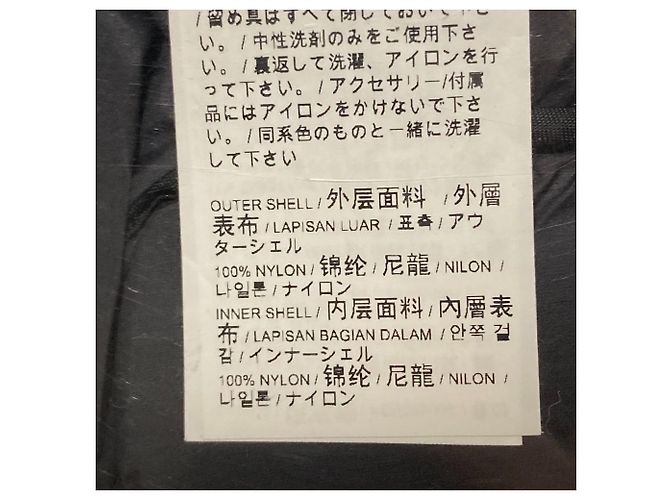 /留め具はすべて閉じておいて下さ
い。/中性洗剤のみをご使用下さ
い。/裏返して洗濯、アイロンを行
って下さい。/アクセサリー/付属
品にはアイロンをかけないで下さ
い。/同系色のものと一緒に洗濯
して下さい
OUTER SHELL / 外层面料 / 外層
表布 / LAPISAN LUAR / 표측 / アウ
ターシェル
100% NYLON / 锦纶 / 尼龍 / NILON /
나일론 / ナイロン
INNER SHELL / 内层面料 / 內層表
布 / LAPISAN BAGIAN DALAM / 안쪽 겉
감 / インナーシェル
100% NYLON / 锦纶 / 尼龍 / NILON /
나일론 / ナイロン